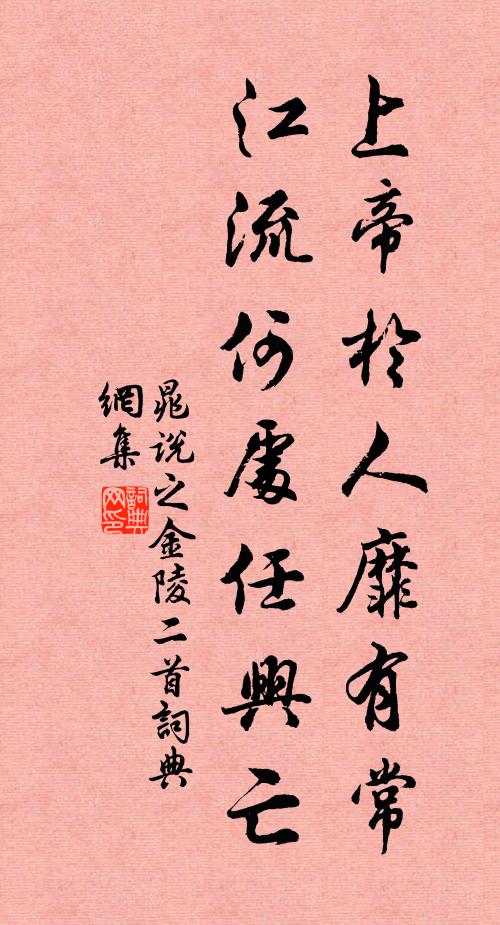 上帝於人靡有常
江流何處任興亡
晁说之金陵二首詞典
網集
詞典
网印